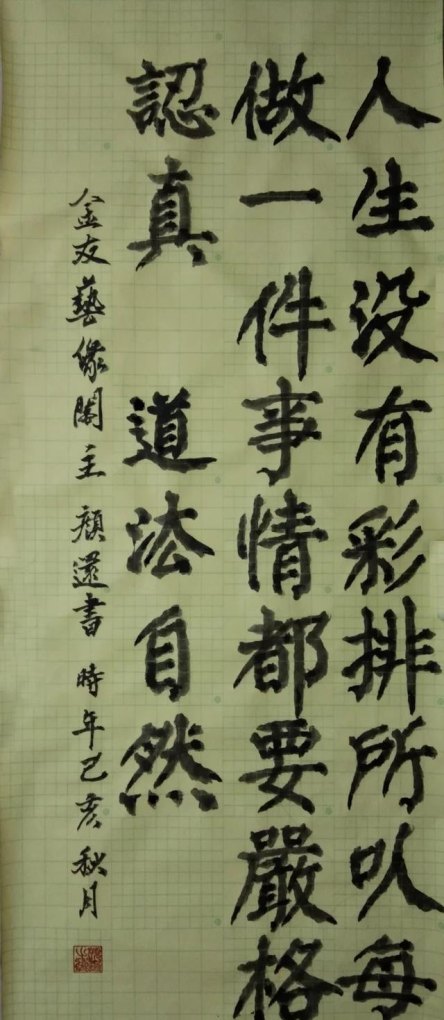 人生没有彩排所以每
做一件事情都要嚴格
認真 道法自然
金友藝缘閣主 顔還書 時年己亥秋月